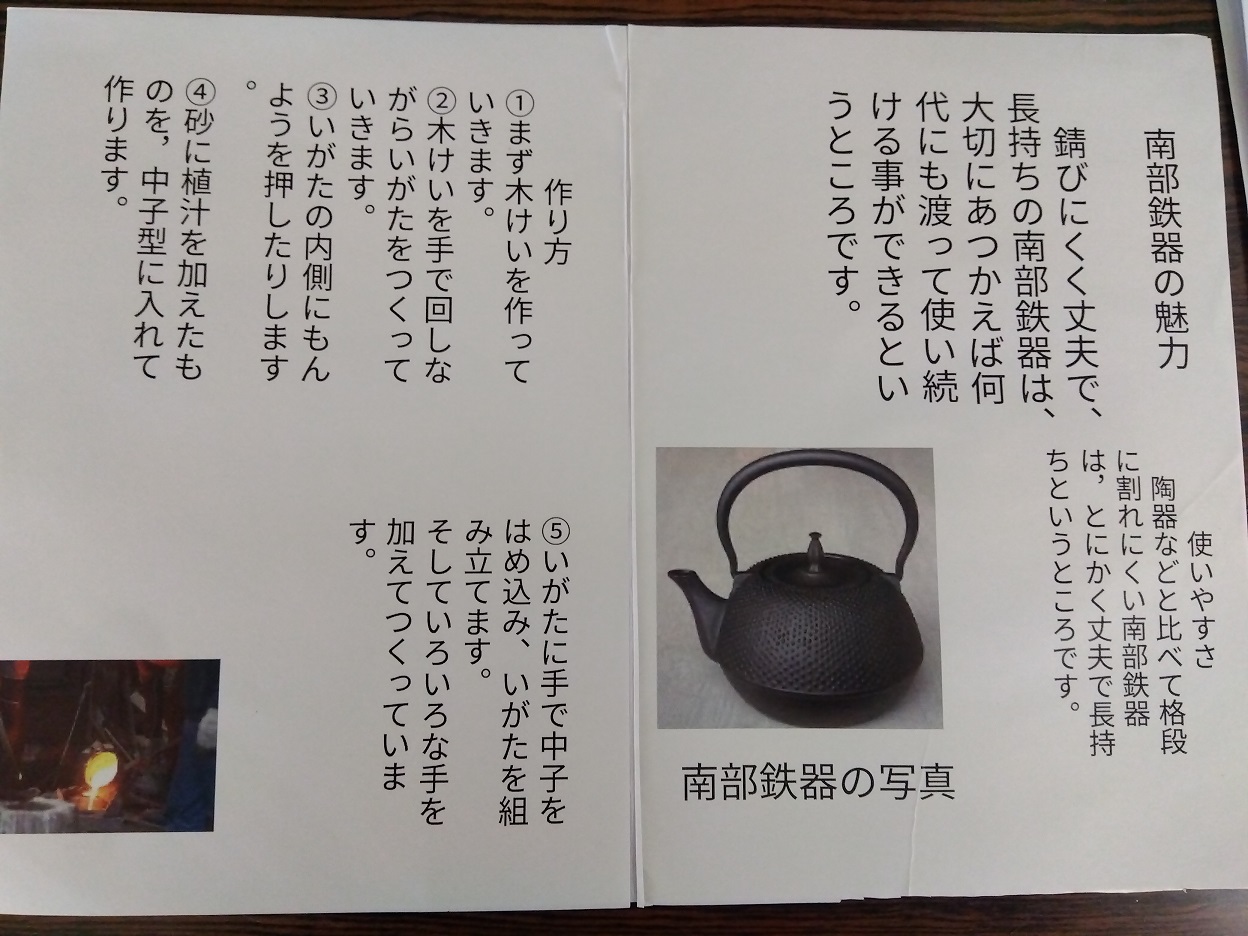 南部鉄器の魅力
錆びにくく丈夫で、
長持ちの南部鉄器は、
大切にあつかえば何
代にも渡って使い続
ける事ができるとい
うところです。
使いやすさ
陶器などと比べて格段
に割れにくい南部鉄器
は，とにかく丈夫で長持
ちというところです。
南部鉄器の写真
作り方
①まず木けいを作って
いきます。
②木けいを手で回しな
がらいがたをつくって
いきます。
③いがたの内側にもん
ようを押したりします
。
④砂に植汁を加えたも
のを，中子型に入れて
作ります。
⑤いがたに手で中子を
はめ込み、いがたを組
み立てます。
そしていろいろな手を
加えてつくっていま
す。